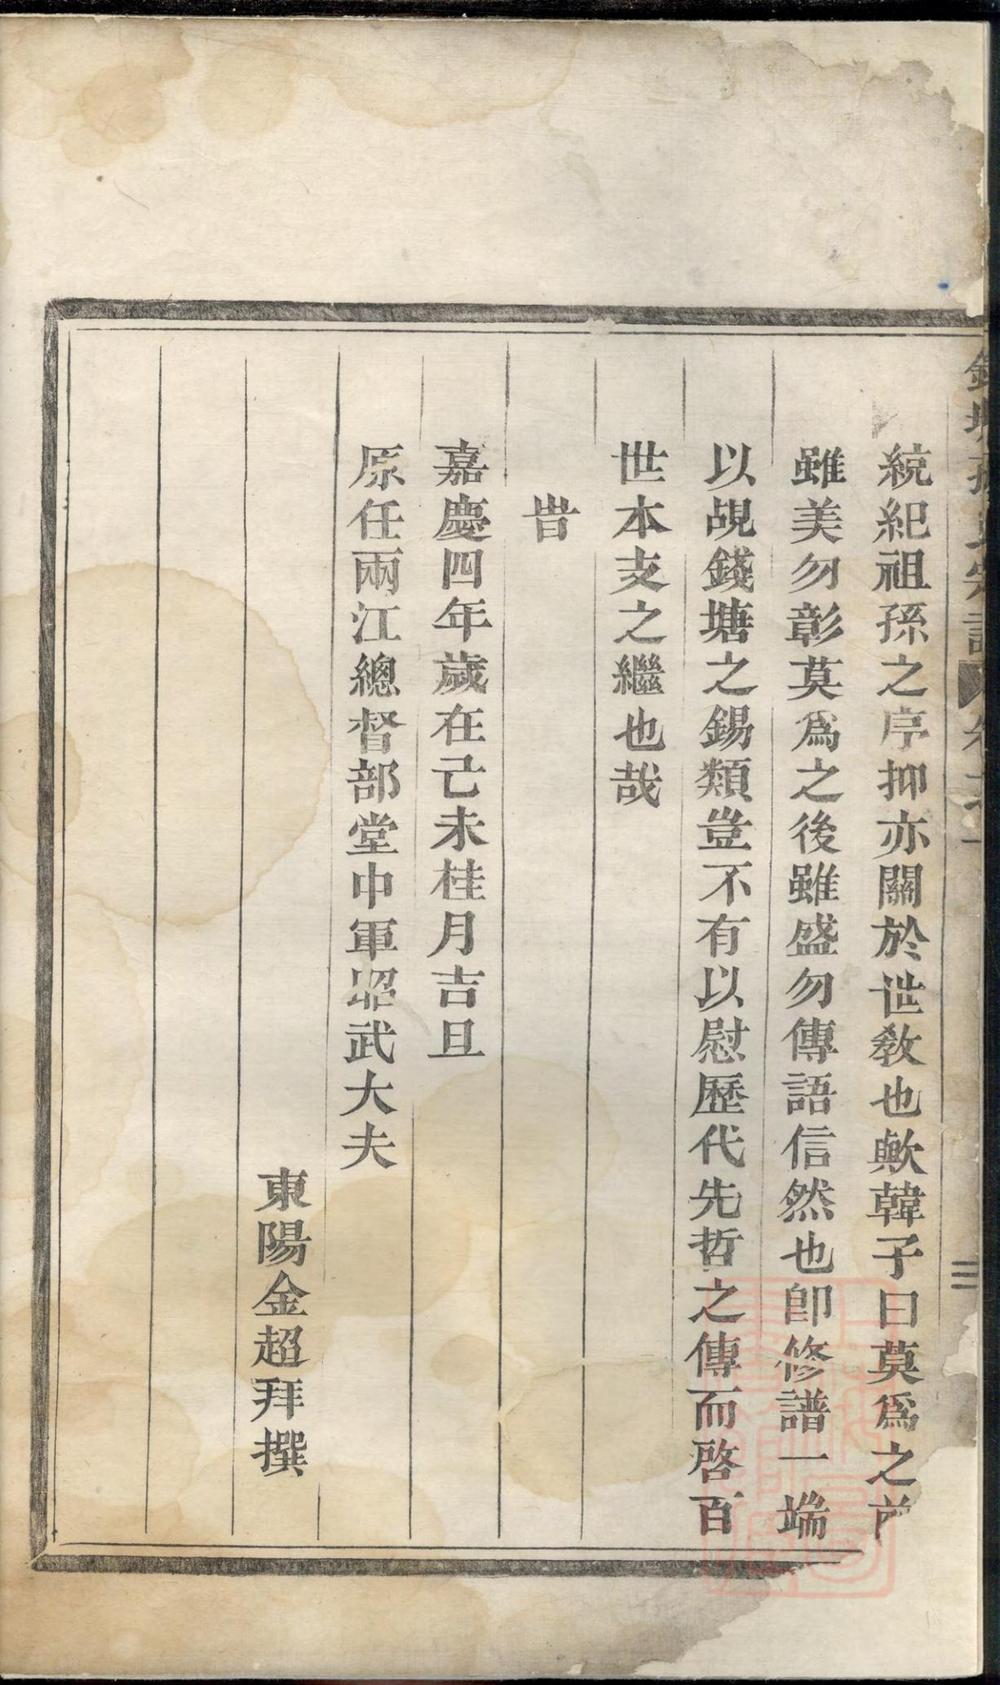 統紀祖孫之序抑亦關於世教也歟韓子曰莫爲之前
雖美勿彰莫爲之後雖盛勿傳語信然也卽修譜一端
以覘錢塘之錫類豈不有以慰歷代先哲之傳而啓百
世本支之繼也哉
旹
嘉慶四年歲在己未桂月吉旦
原任兩江總督部堂中軍昭武大夫
東陽金超拜撰